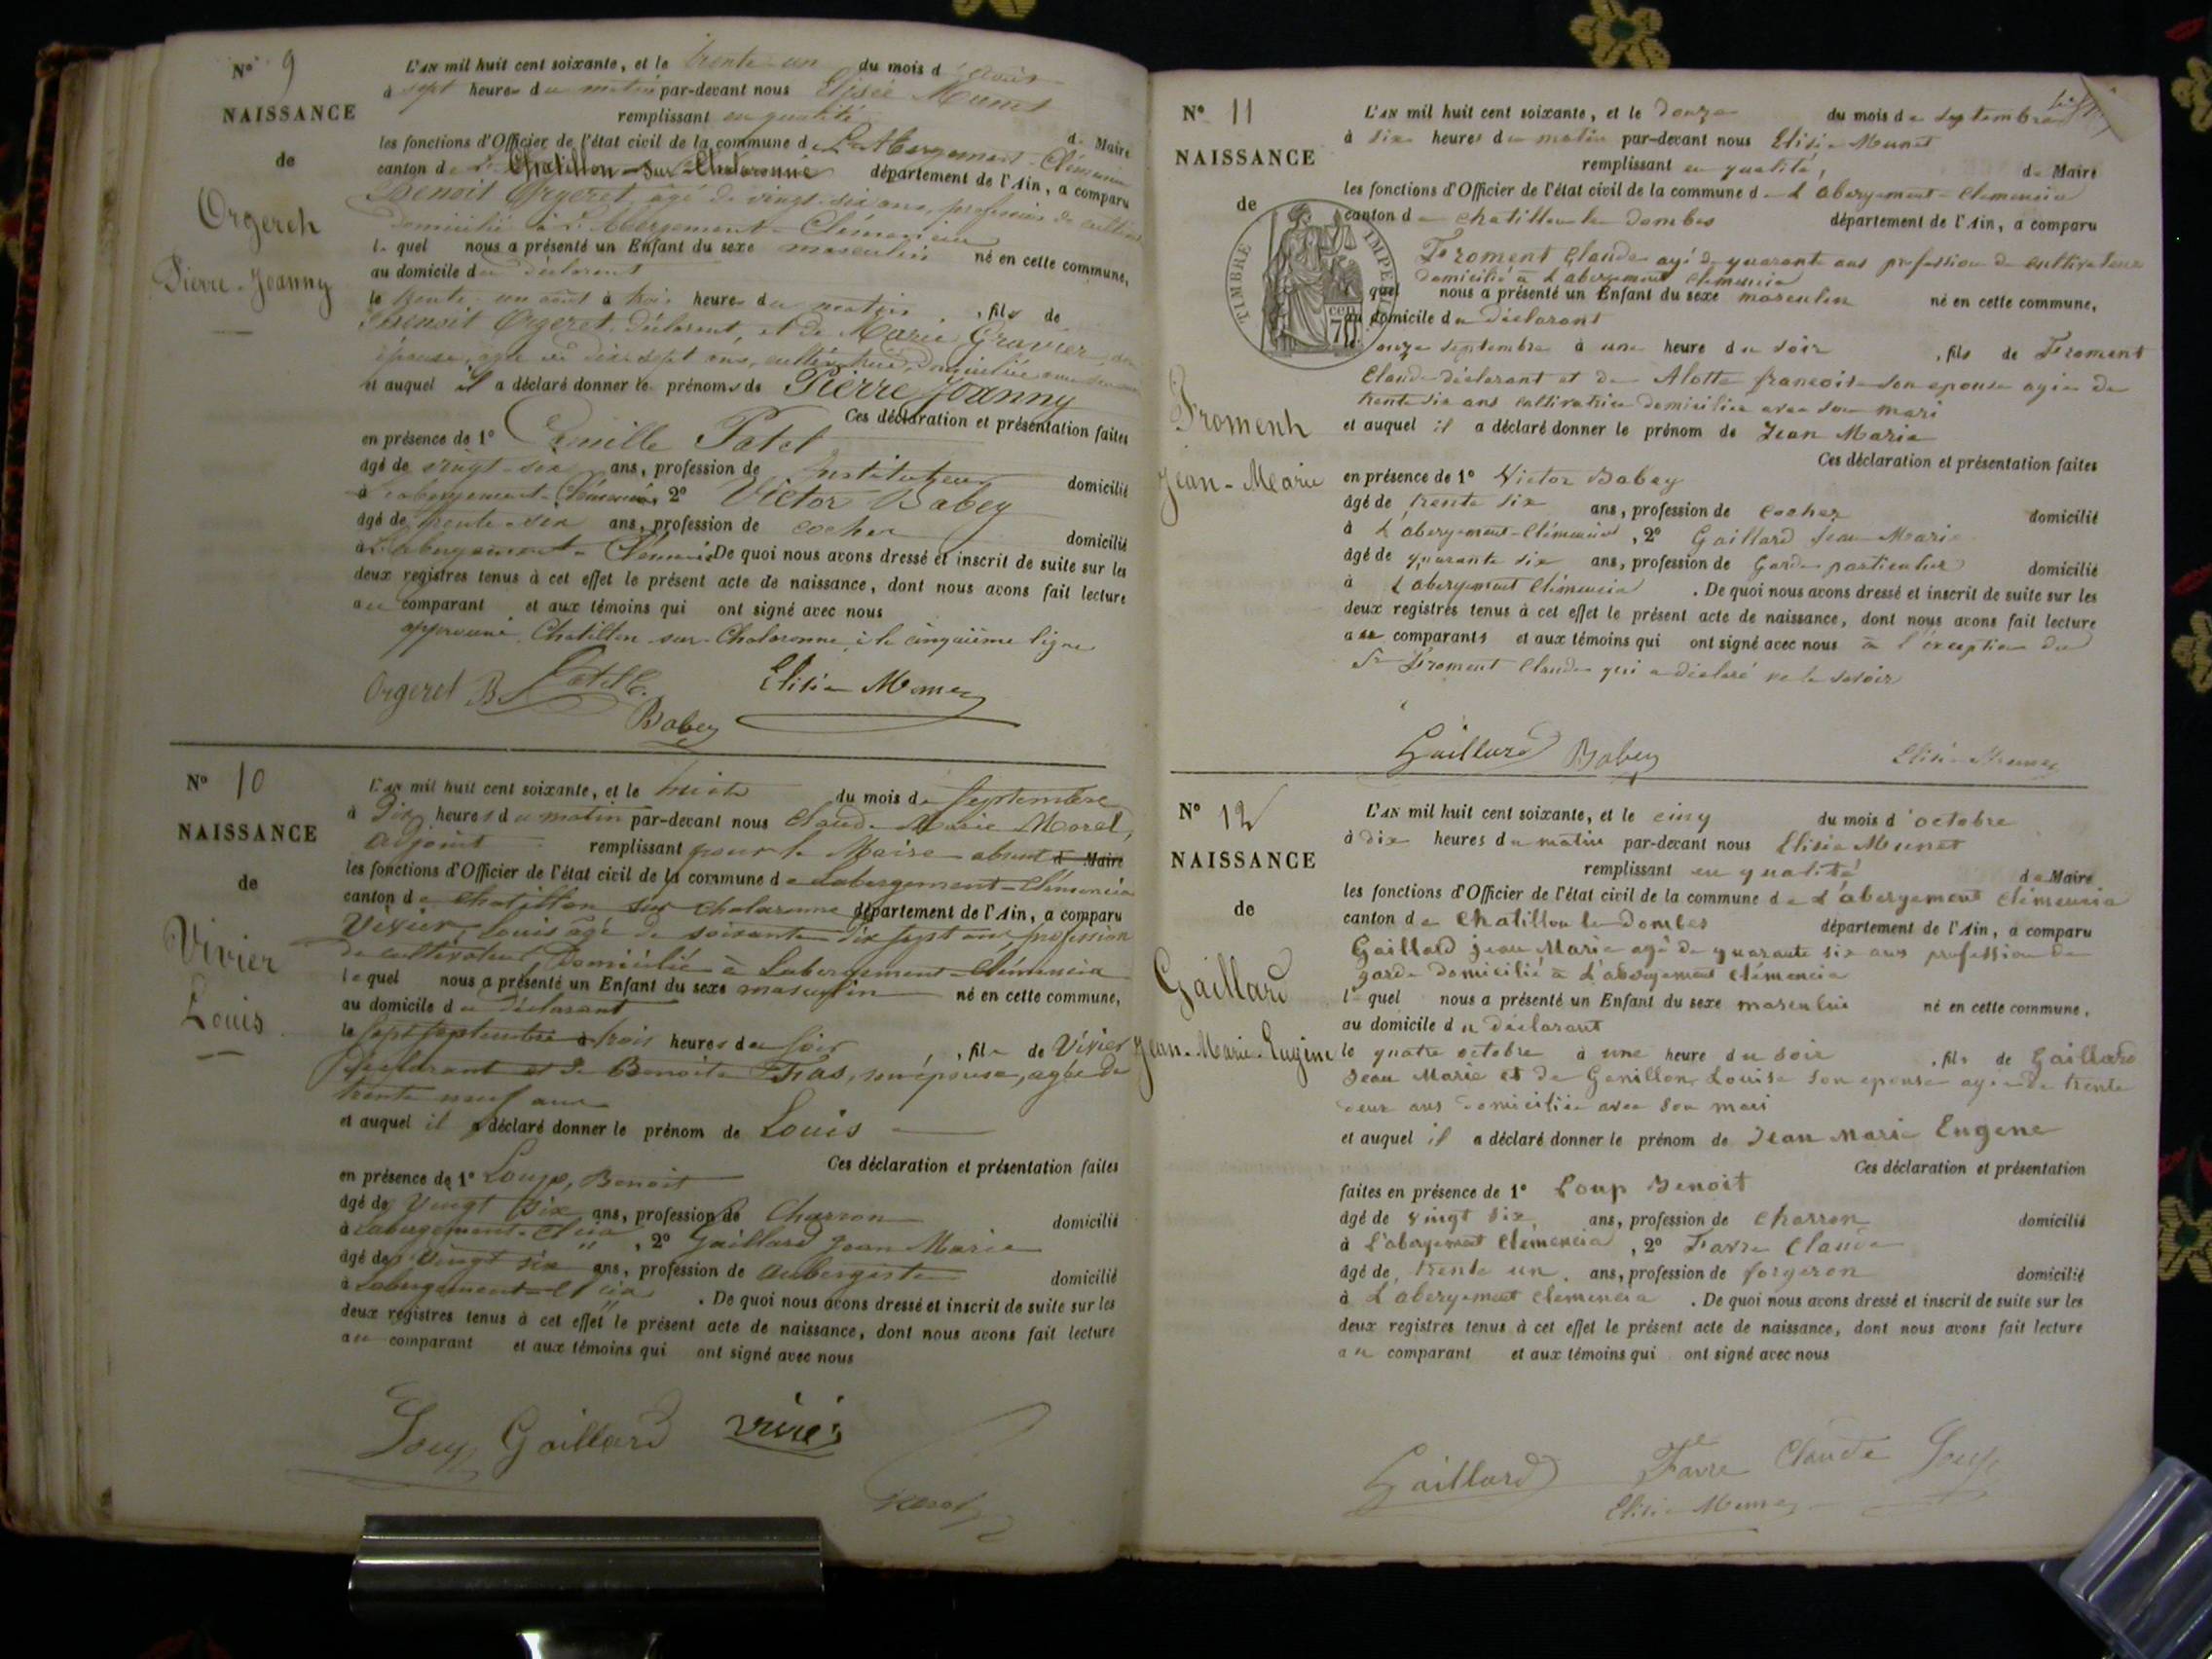 N° 9
NAISSANCE
de
Orgeret
Pierre-Joanny
L'AN mil huit cent soixante, et le trente-un du mois d'août
à sept heures du matin par-devant nous Elisée Munet
remplissant en qualité de Maire
les fonctions d'Officier de l'état civil de la commune de L'Abergement-Clémencia
canton de Chatillon-sur-Chalaronne département de l'Ain, a comparu
Benoit Orgeret, âgé de vingt-six ans, profession de
domicilié à L'Abergement-Clémencia
lequel nous a présenté un Enfant du sexe masculin né en cette commune,
au domicile du déclarant
le trente-un août à trois heures du matin, fils de
Benoit Orgeret, déclarant, et de Marie Gravier, son
épouse, agée de dix sept ans, domiciliée
et auquel il a déclaré donner le prénoms de Pierre Joanny
Ces déclaration et présentation faites
en présence de 1° Camille Patel
âgé de vingt-six ans, profession de Instituteur domicilié
à Labergement-Clémencia, 2° Victor Babey
âgé de trente-six ans, profession de cocher domicilié
à Labergement-Clémencia De quoi nous avons dressé et inscrit de suite sur les
deux registres tenus à cet effet le présent acte de naissance, dont nous avons fait lecture
au comparant et aux témoins qui ont signé avec nous
approuvé Chatillon-sur-Chalaronne à la cinquième ligne
Orgeret B Patel C. Elisée Munet
Babey
N° 10
NAISSANCE
de
Vivier
Louis
L'AN mil huit cent soixante, et le huit du mois de Septembre
à Dix heures du matin par-devant nous Claude Marie Morel,
adjoint remplissant pour le Maire absent d Maire
les fonctions d'Officier de l'état civil de la commune de Labergement-Clémencia
canton de Chatillon sur Chalaronne département de l'Ain, a comparu
Vivier Louis âgé de soixante dix sept ans profession
de cultivateur, Domicilié à Labergement-Clémencia
lequel nous a présenté un Enfant du sexe masculin né en cette commune,
au domicile du déclarant
le sept septembre à trois heures du soir, fils de Vivier
déclarant et de Benoite Fras, son épouse, agée de
trente neuf ans
et auquel il a déclaré donner le prénom de Louis
Ces déclaration et présentation faites
en présence de 1° Loup, Benoit
âgé de Vingt Six ans, profession de Charron domicilié
à Labergement-Cl cia, 2° Gaillard Jean Marie
âgé de Vingt six ans, profession de Aubergiste domicilié
à Labergement-Cl cia. De quoi nous avons dressé et inscrit de suite sur les
deux registres tenus à cet effet le présent acte de naissance, dont nous avons fait lecture
au comparant et aux témoins qui ont signé avec nous
Loup Gaillard Vivier
Morel
N° 11
NAISSANCE
de
TIMBRE IMPE
Froment
Jean-Marie
L'AN mil huit cent soixante, et le douze du mois de septembre
à dix heures du matin par-devant nous Elisée Munet
remplissant en qualité, de Maire
les fonctions d'Officier de l'état civil de la commune de L'abergement-Clemencia
canton de Chatillon les Dombes département de l'Ain, a comparu
Froment Claude agé de quarante ans profession de cultivateur
domicilié à L'abergement Clemencia
quel nous a présenté un Enfant du sexe masculin né en cette commune,
au domicile du déclarant
onze septembre à une heure du soir, fils de Froment
Claude déclarant et de Alotte françoise son epouse agée de
trente six ans cultivatrice domiciliée avec son mari
et auquel il a déclaré donner le prénom de Jean Marie
Ces déclaration et présentation faites
en présence de 1° Victor Babey
âgé de trente six ans, profession de cocher domicilié
à L'abergement-Clémencia, 2° Gaillard Jean-Marie
âgé de quarante six ans, profession de Garde particulier domicilié
à L'abergement Clémencia. De quoi nous avons dressé et inscrit de suite sur les
deux registres tenus à cet effet le présent acte de naissance, dont nous avons fait lecture
au comparants et aux témoins qui ont signé avec nous à l'exception du
Sr Froment Claude qui a déclaré ne le savoir
Gaillard Babey Elisée Munet
N° 12
NAISSANCE
de
Gaillard
Jean-Marie-Eugène
L'AN mil huit cent soixante, et le cinq du mois d'octobre
à dix heures du matin par-devant nous Elisée Munet
remplissant en qualité de Maire
les fonctions d'Officier de l'état civil de la commune de L'abergement Clémencia
canton de Chatillon les Dombes département de l'Ain, a comparu
Gaillard jean Marie agé de quarante six ans profession de
garde domicilié à L'abergement Clémencia
lequel nous a présenté un Enfant du sexe masculin né en cette commune,
au domicile du déclarant
le quatre octobre à une heure du soir, fils de Gaillard
Jean Marie et de Genillon Louise son epouse agée de trente
deux ans domiciliée avec son mari
et auquel il a déclaré donner le prénom de Jean Marie Eugene
Ces déclaration et présentation
faites en présence de 1° Loup Benoit
âgé de vingt six ans, profession de charron domicilié
à L'abergement Clemencia, 2° Favre Claude
âgé de trente un ans, profession de forgeron domicilié
à L'abergement Clemencia. De quoi nous avons dressé et inscrit de suite sur les
deux registres tenus à cet effet le présent acte de naissance, dont nous avons fait lecture
au comparant et aux témoins qui ont signé avec nous
Gaillard Favre Claude Loup
Elisée Munet